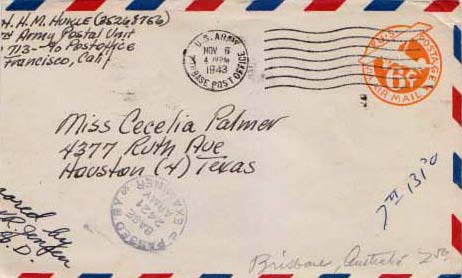 H. H. M. Hukle (35268756)
Army Postal Unit
713 - % Postoffice
Francisco, Calif
U.S. ARMY
NOV 6
1943
BASE POST OFFICE
U.S. POSTAGE
6¢
AIR MAIL
Miss Cecelia Palmer
4377 Ruth Ave
Houston (4) Texas
PASSED BY
BASE
ARMY EXAMINER
ored by
Brisbane, Australia